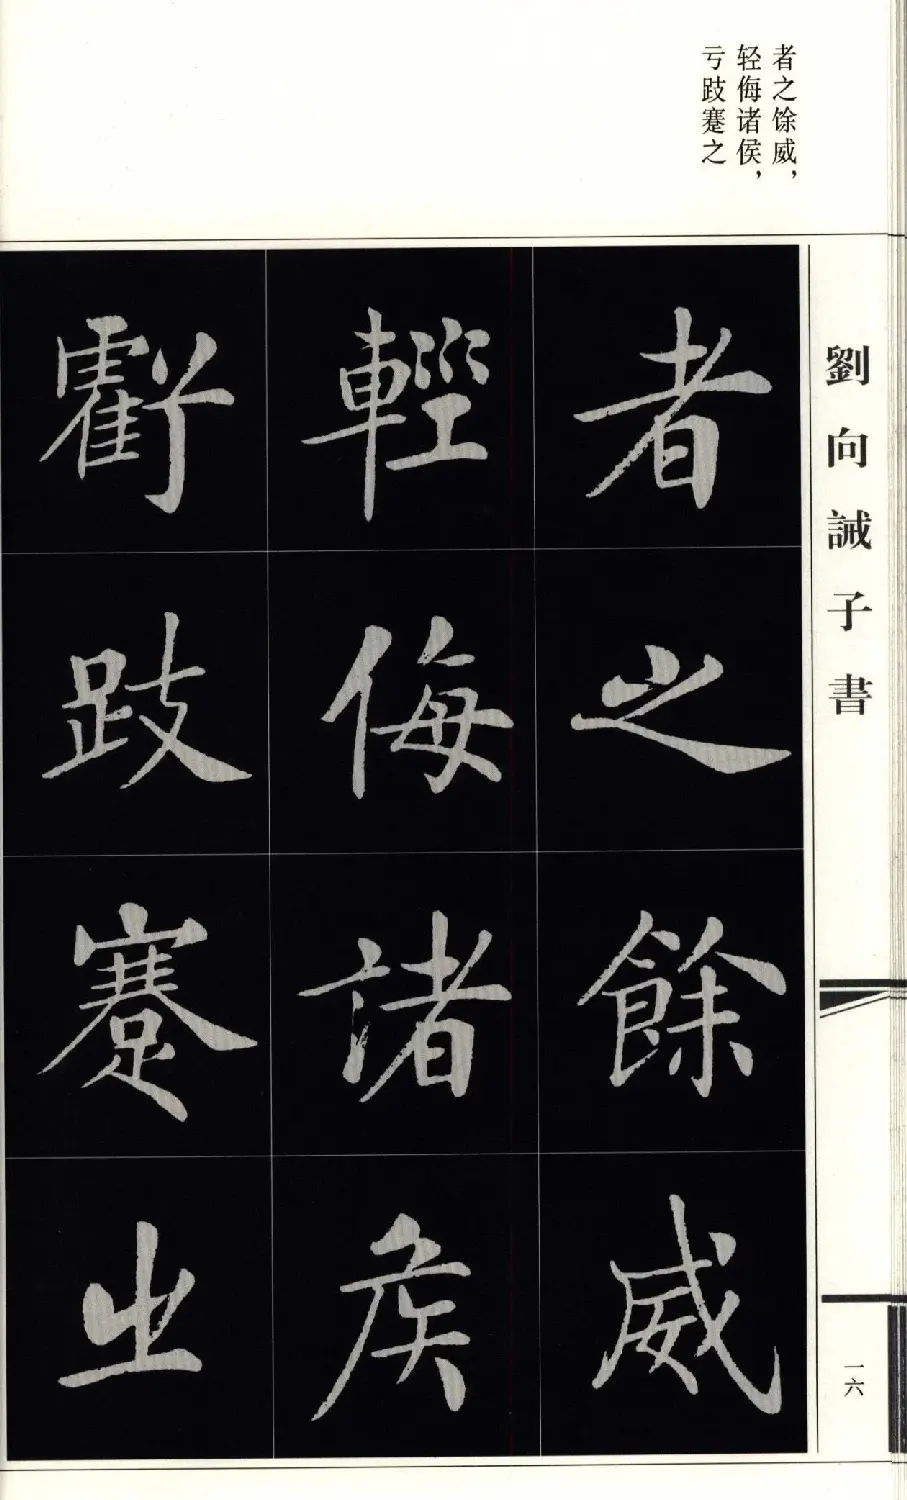 者之馀威，
轻侮诸侯，
亏跂蹇之
劉向誡子書
者之餘威
輕侮諸矦
虧跂蹇之
一六